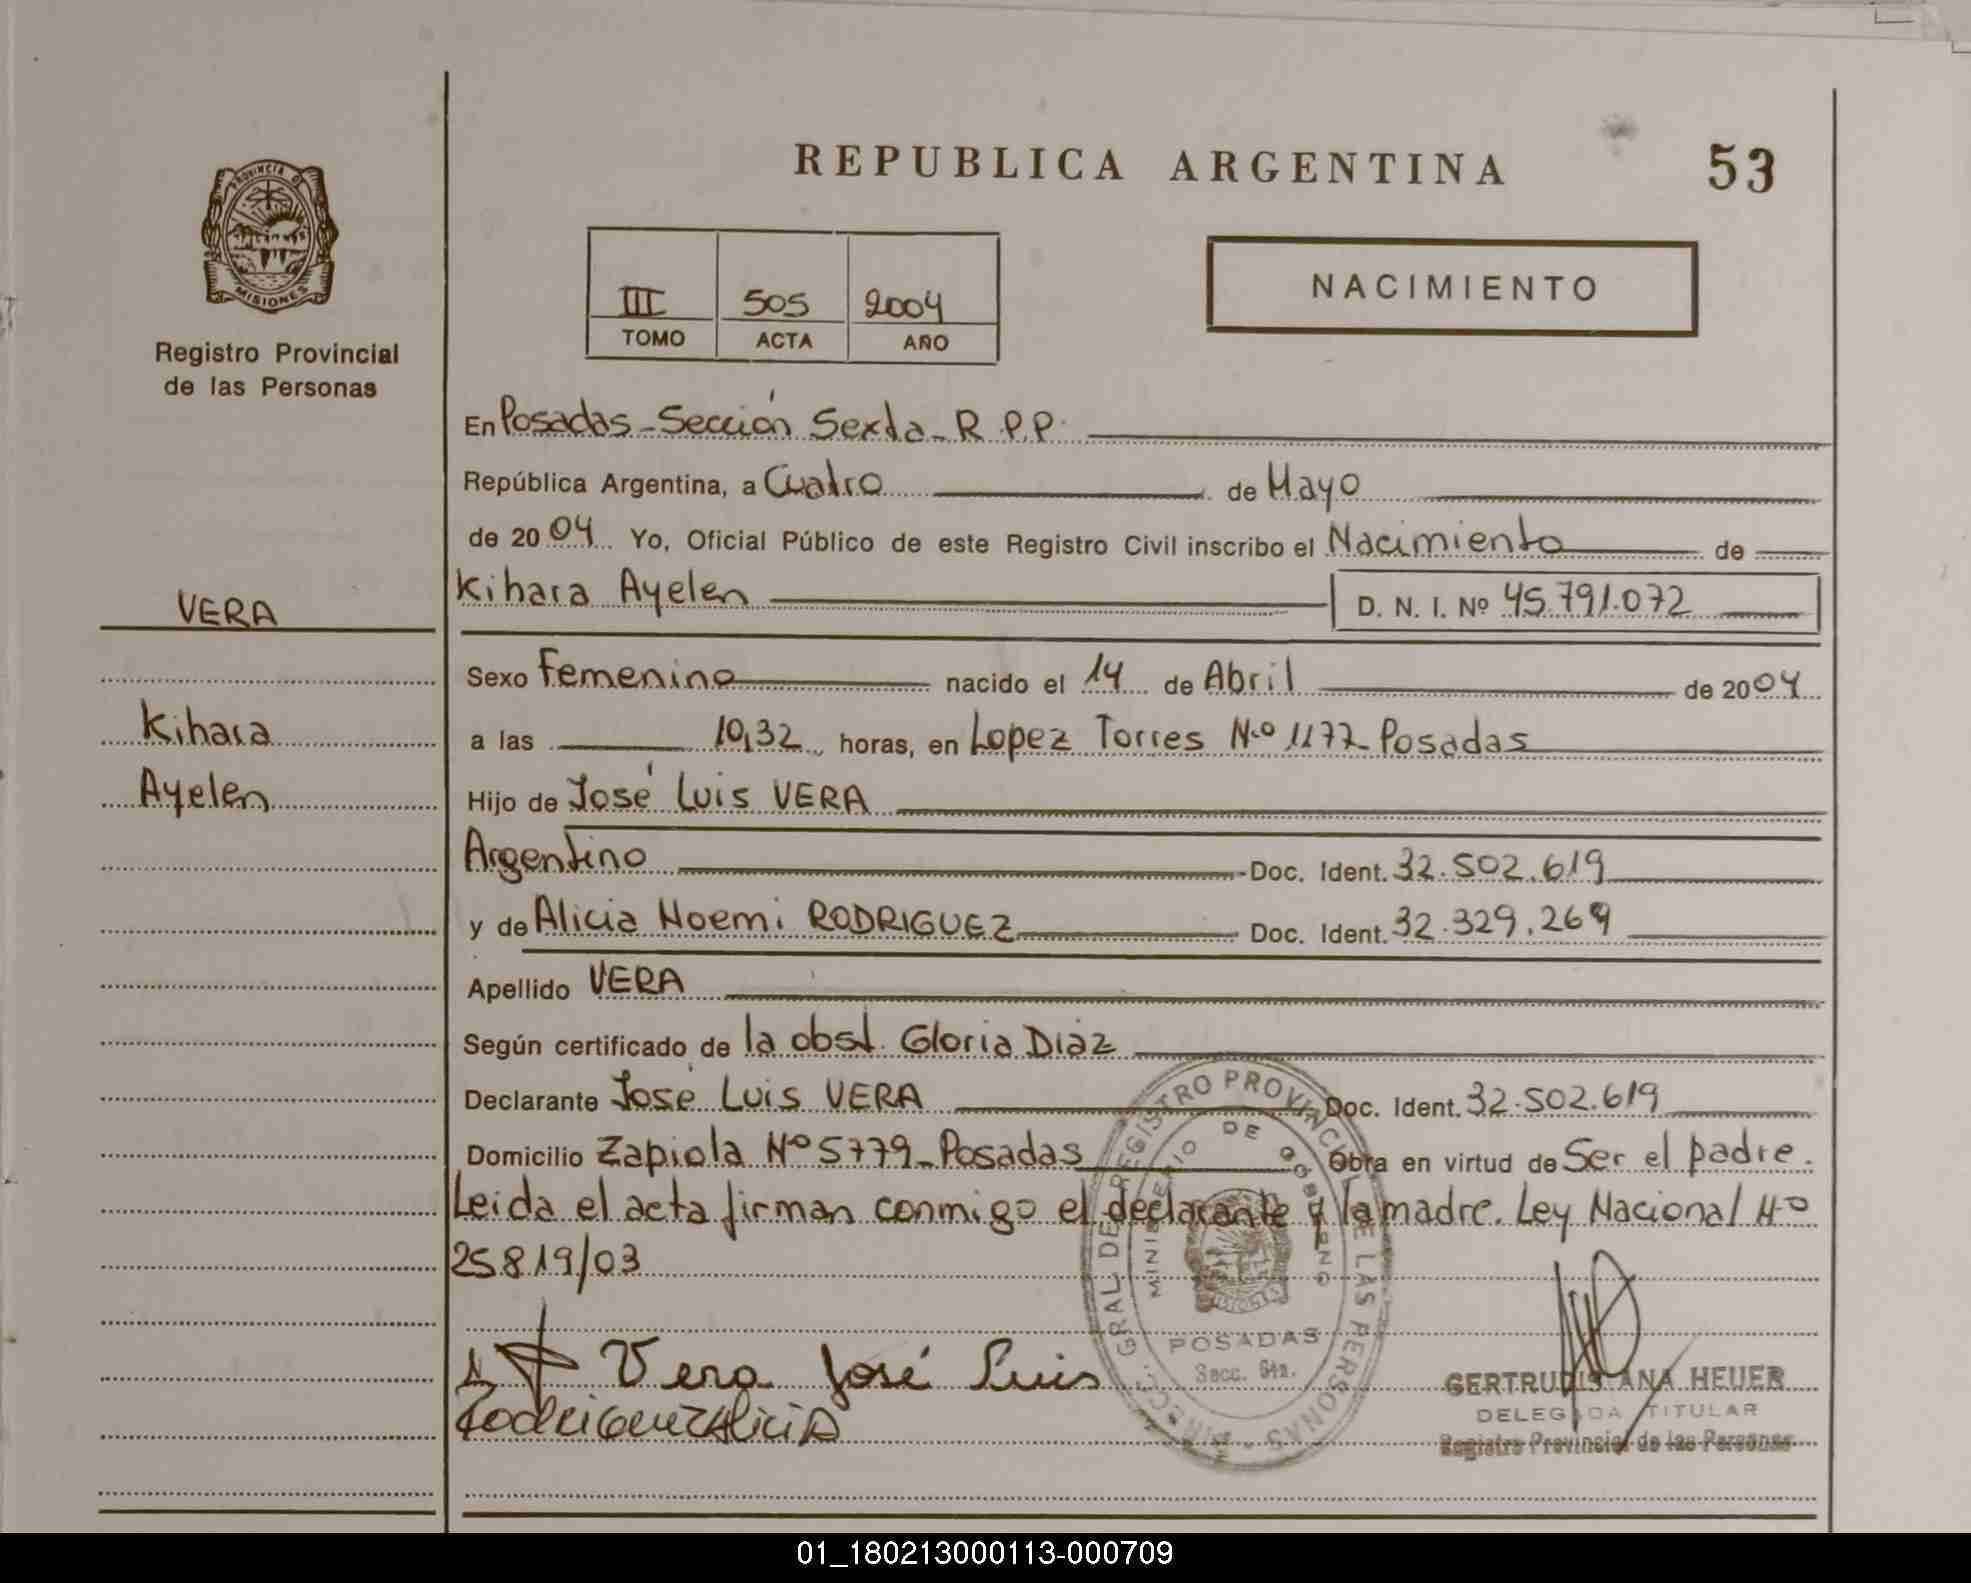 REPUBLICA ARGENTINA
53
PROVINCIA D
MISIONES
Registro Provincial
de las Personas
III 505 2004
TOMO ACTA AÑO
NACIMIENTO
En Posadas - Sección Sexta - R.P.P.
República Argentina, a Cuatro de Mayo
de 2004 Yo, Oficial Público de este Registro Civil inscribo el Nacimiento de
Kihara Ayelen D. N. I. Nº 45.791.072
VERA
Kihara
Ayelen
Sexo Femenino nacido el 14 de Abril de 2004
a las 10,32 horas, en Lopez Torres Nº 1177 Posadas
Hijo de José Luis VERA
Argentino Doc. Ident. 32.502.619
y de Alicia Noemi RODRIGUEZ Doc. Ident. 32.329.269
Apellido VERA
Según certificado de la obst. Gloria Diáz
Declarante José Luis VERA Doc. Ident. 32.502.619
Domicilio Zapiola Nº 5779 - Posadas Obra en virtud de Ser el padre.
Leida el acta firman conmigo el declarante y la madre. Ley Nacional Nº
25819/03
Vera José Luis
Rodriguez Alicia
DIRECC. GRAL DE REGISTRO PROVINCIAL DE LAS PERSONAS
MINISTERIO DE GOBIERNO
MISIONES
POSADAS
Secc. 6ta.
GERTRUDIS ANA HEUER
DELEGADA TITULAR
Registro Provincial de las Personas
01_180213000113-000709